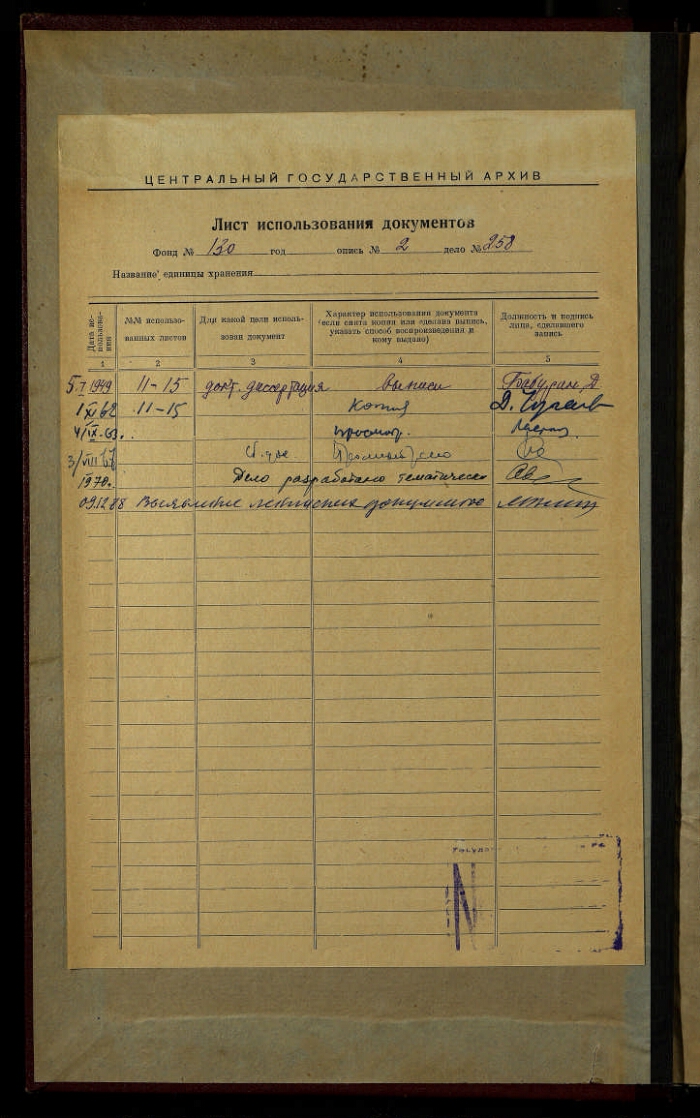 ЦЕНТРАЛЬНЫЙ ГОСУДАРСТВЕННЫЙ АРХИВ
Лист использования документов
Фонд № 130 год опись № 2 дело № 258
Название единицы хранения
Дата ис-
пользова-
ния
№№ использо-
ванных листов
Для какой цели исполь-
зован документ
Характер использования документа
(если снята копия или сделана выпись,
указать способ воспроизведения и
кому выдано)
Должность и подпись
лица, сделавшего
запись
1 2 3 4 5
5.I 1949 11-15 докт. диссертация выписи
1 XI 62 11-15 Копия
4/IX-63. просмотр.
3/VIII 67 Просмотрено
1970. Дело разработано тематически
09.12.88 Выявление ленинских документов